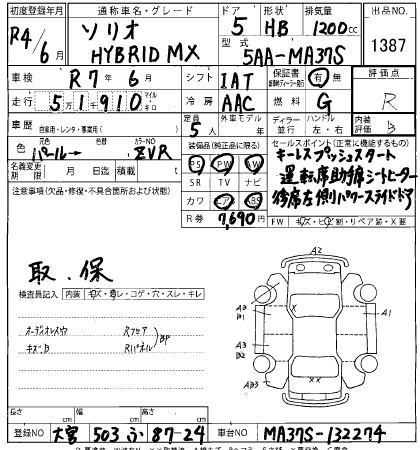 初度登録年月 通称車名・グレード ドア 形状 排気量 出品NO
R4/6月 ソリオ HYBRID MX 5 HB 1200cc 1387
型式 5AA-MA37S
車検 R7年6月 シフト IAT 保証書 有 無 評価点
走行 51910 マイル キロ 冷房 AAC 燃料 G R
車歴 自家用・レンタ・事業用( ) 定員 5人 外車モデル 年 ディーラー 並行 ハンドル 左 右 内装評価 B
色 元色 パール→ 色替 カラーNO ZVR 装備品(純正品に限る) セールスポイント(正常に機能するもの)
名義変更期限 月 日迄 積載 t PS PW AW キーレスプッシュスタート
注意事項(欠品・修復・不具合箇所および状態) SR TV ナビ 運転席助手席シートヒーター
カワ エアB ABS 後席左側パワースライドドア
R券 7,690円 FW キズ・ヒビ割・リペア跡・X要
取.保
検査員記入 内装 キズ・汚レ・コゲ・穴・スレ・キレ
Rフェア
キズB Rパネル BP
A2
A3 B1 X A1
A3 B2
AB3 XX
長さ cm 幅 cm 高さ cm
登録NO 大宮 503 ふ 87-24 車台NO MA37S-132274